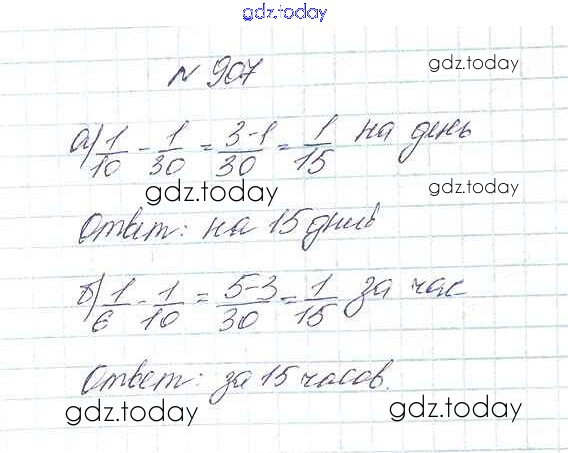 gdz.today
№ 907
gdz.today
а) 1/10 - 1/30 = 3-1/30 = 1/15 на день
gdz.today
gdz.today
Ответ: на 15 дней
б) 1/6 - 1/10 = 5-3/30 = 1/15 за час
Ответ: за 15 часов.
gdz.today
gdz.today